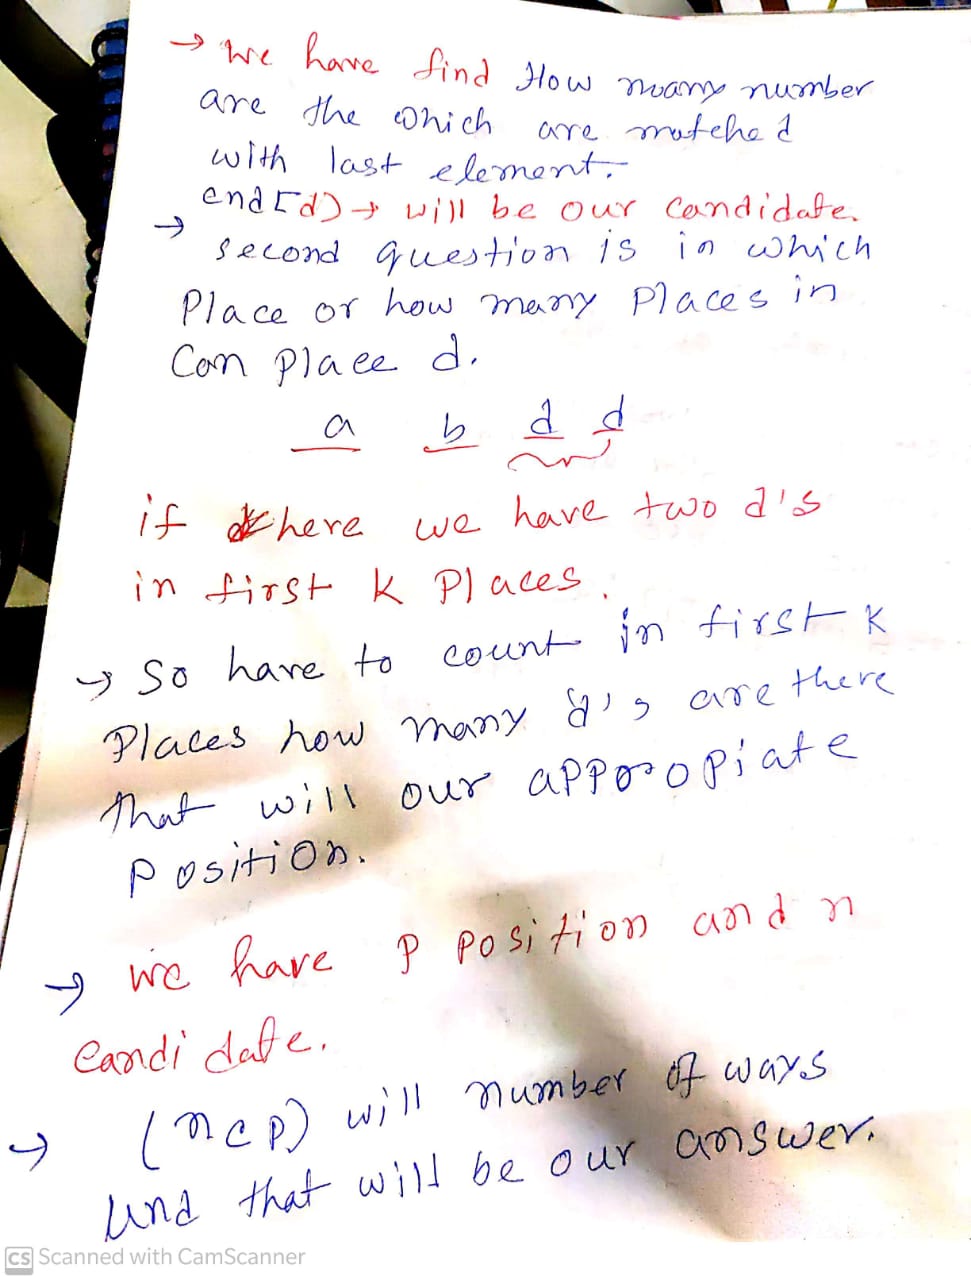 → we have find How many number
are the which are matched
with last element.
end[d) → will be our candidate.
→ second question is in which
Place or how many Places in
Can place d.
a b d d
if here we have two d's
in first k Places.
→ So have to count in first k
Places how many d's are there
that will our appropiate
position.
→ we have P position and n
candidate.
→ (ncp) will number of ways
and that will be our answer.
CS Scanned with CamScanner